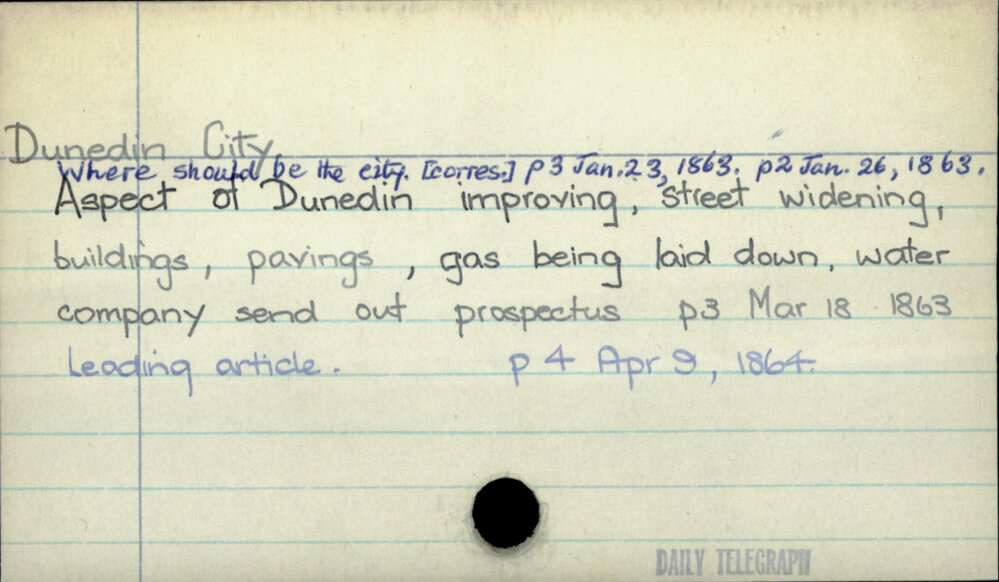 Dunedin City
Where should be the city. [corres.] p3 Jan. 23, 1863. p2 Jan. 26, 1863.
Aspect of Dunedin improving, street widening,
buildings, pavings, gas being laid down, water
company send out prospectus p3 Mar 18 1863
Leading article. p 4 Apr 9, 1864.
DAILY TELEGRAPH